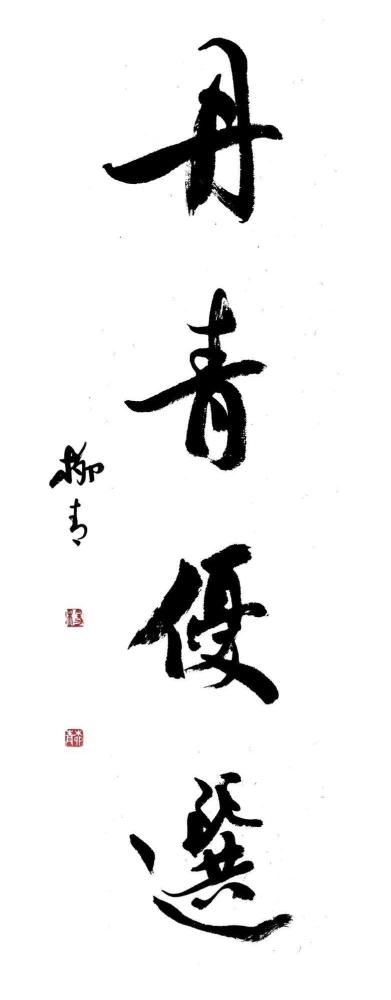 丹青優選
柳青